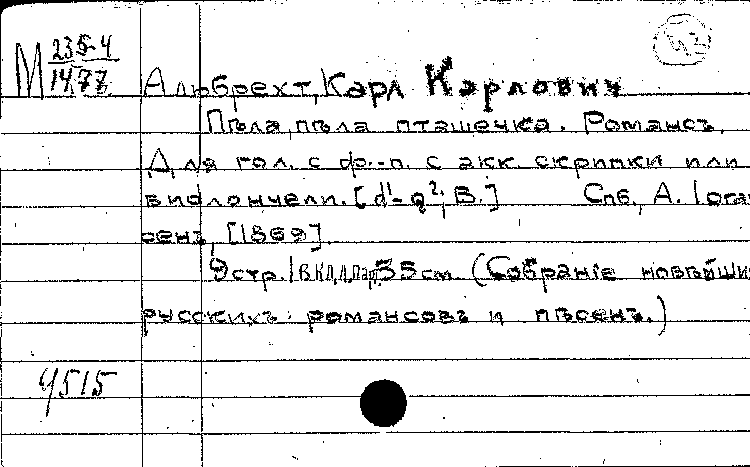 М 235-4
1477
43
Альбрехт, Карл Карлович
Пѣла, пѣла пташечка. Романсъ.
Для гол. с ф.-п. с акк. скрипки или
виолончели. [d¹-g²; B.] Спб., А. Іоган
сенъ, [1869].
9стр. 1 вкл. л. пар. 35см. (Собраніе новѣйши
русскихъ романсовъ и пѣсенъ.)
9515